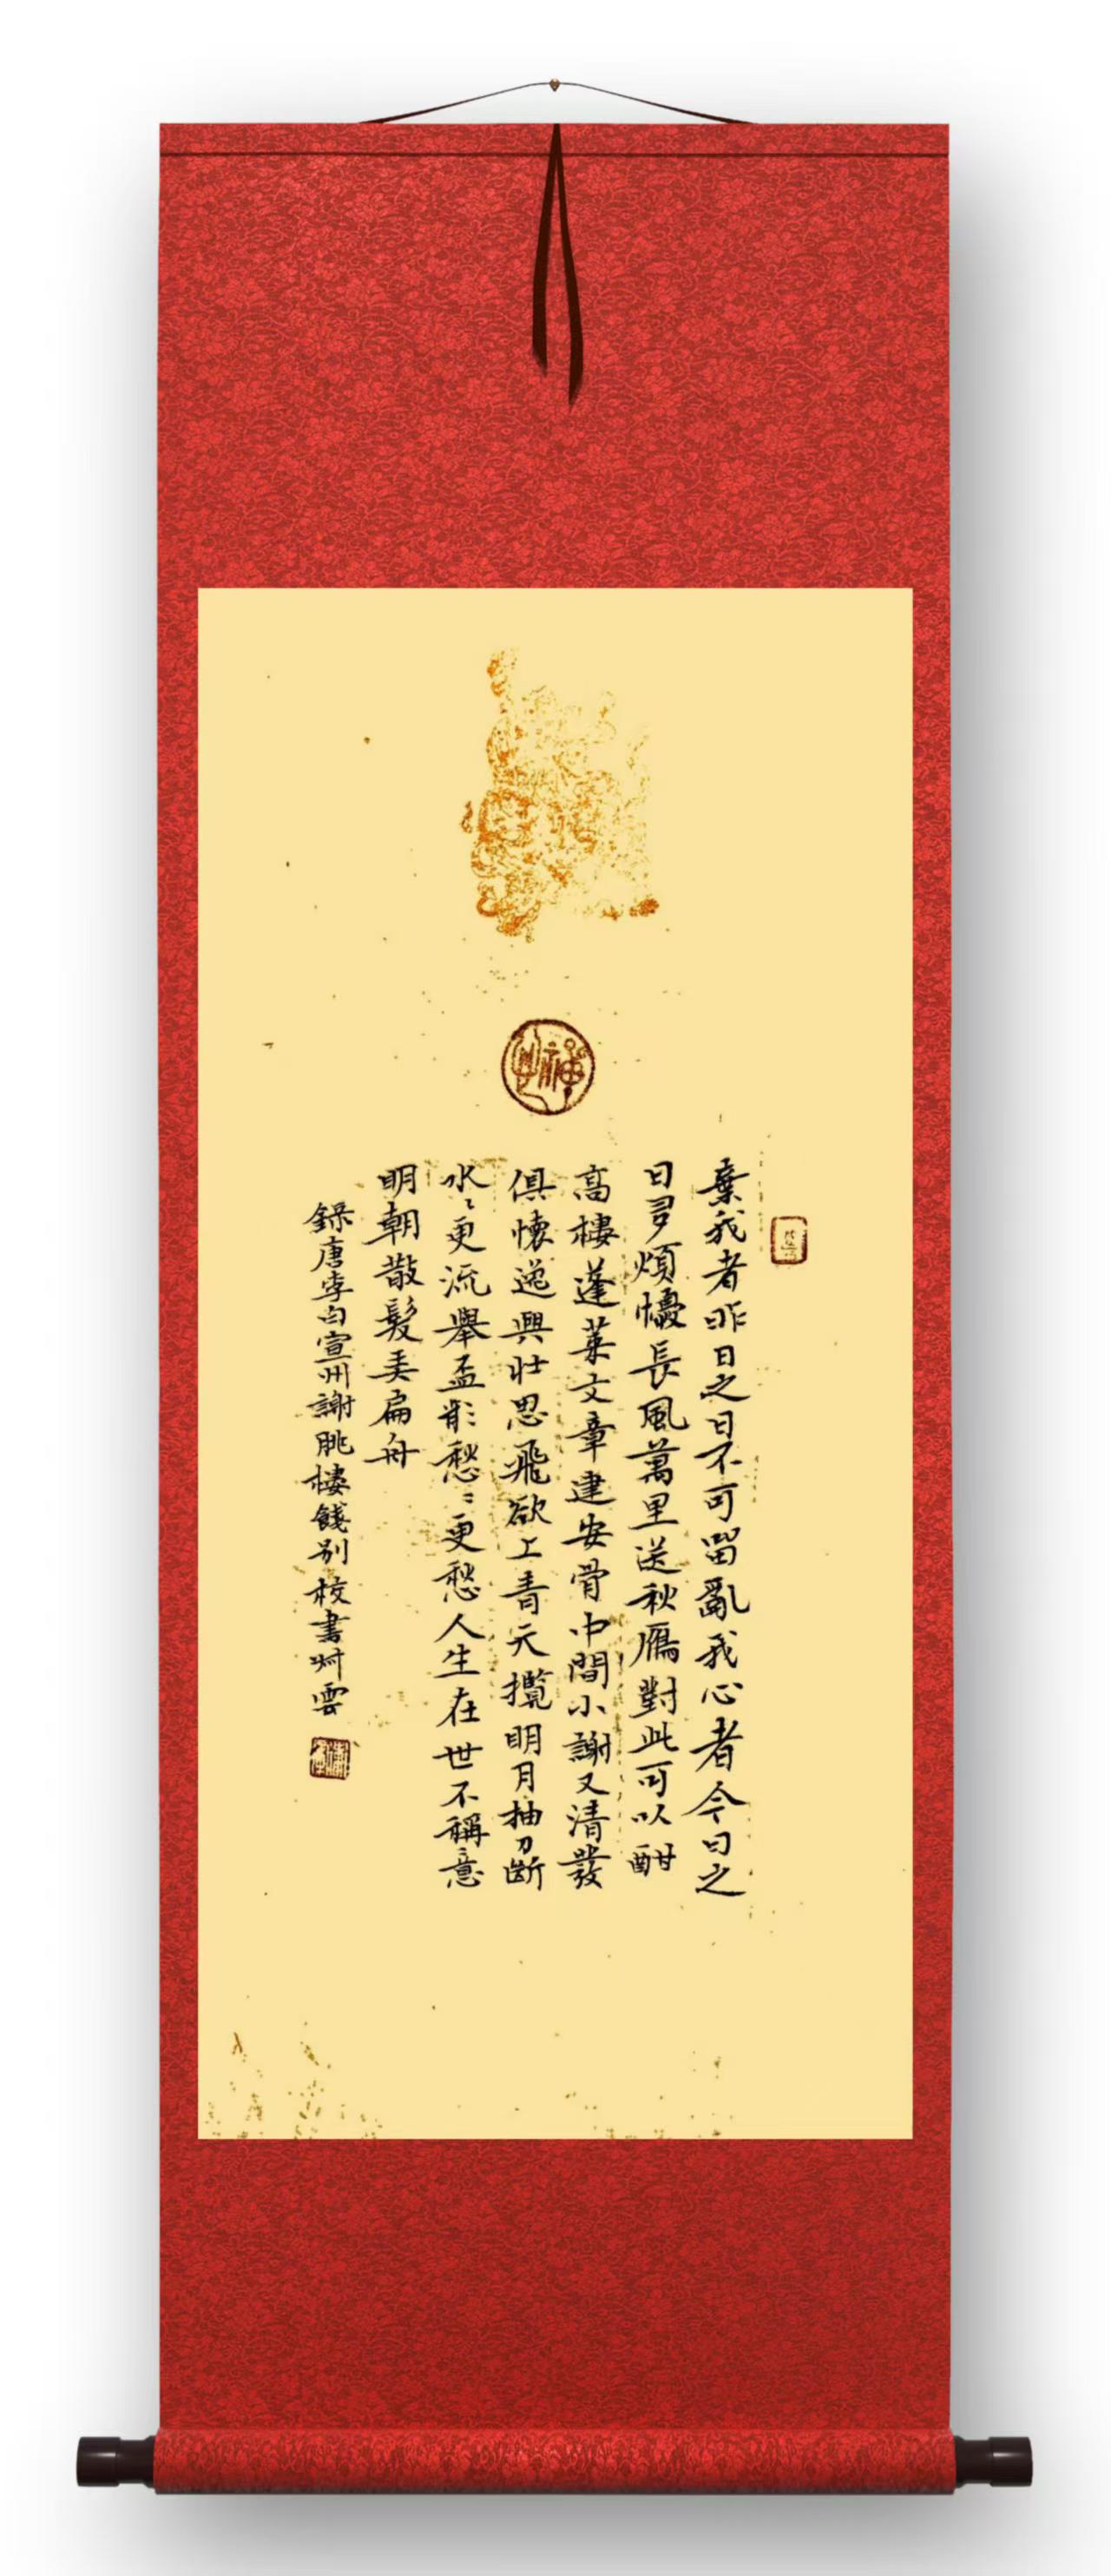 棄我者昨日之日不可留亂我心者今日之
日多煩懮長風萬里送秋鴈對此可以酣
高樓蓬萊文章建安骨中間小謝又清發
俱懷逸興壯思飛欲上青天攬明月抽刀斷
水〻更流舉盃愁〻更愁人生在世不稱意
明朝散髮弄扁舟
錄唐李白宣州謝朓樓餞別校書叔雲